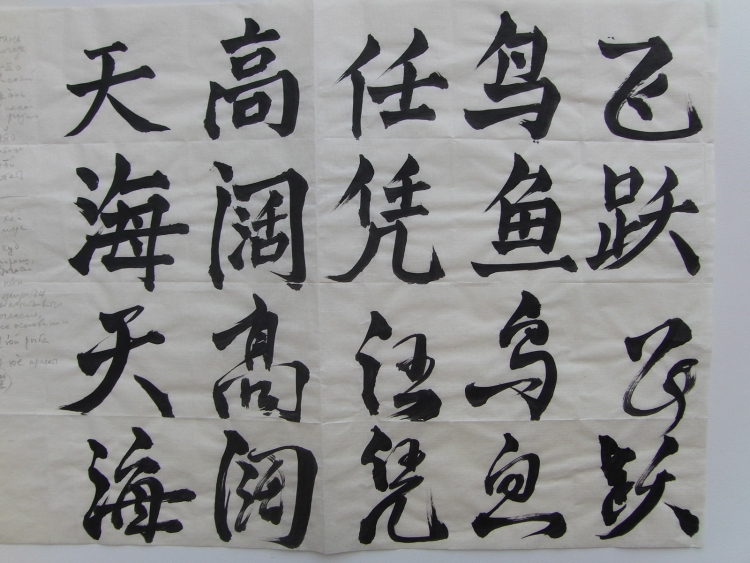 天高任鸟飞
海阔凭鱼跃
天高任鸟飞
海阔凭鱼跃